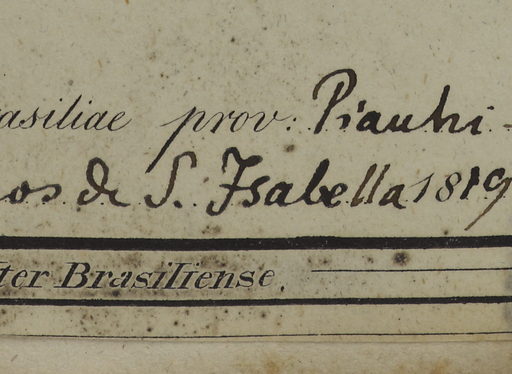 asiliae prov. Piauhi -
os de S. Isabella 1819
ter Brasiliense.